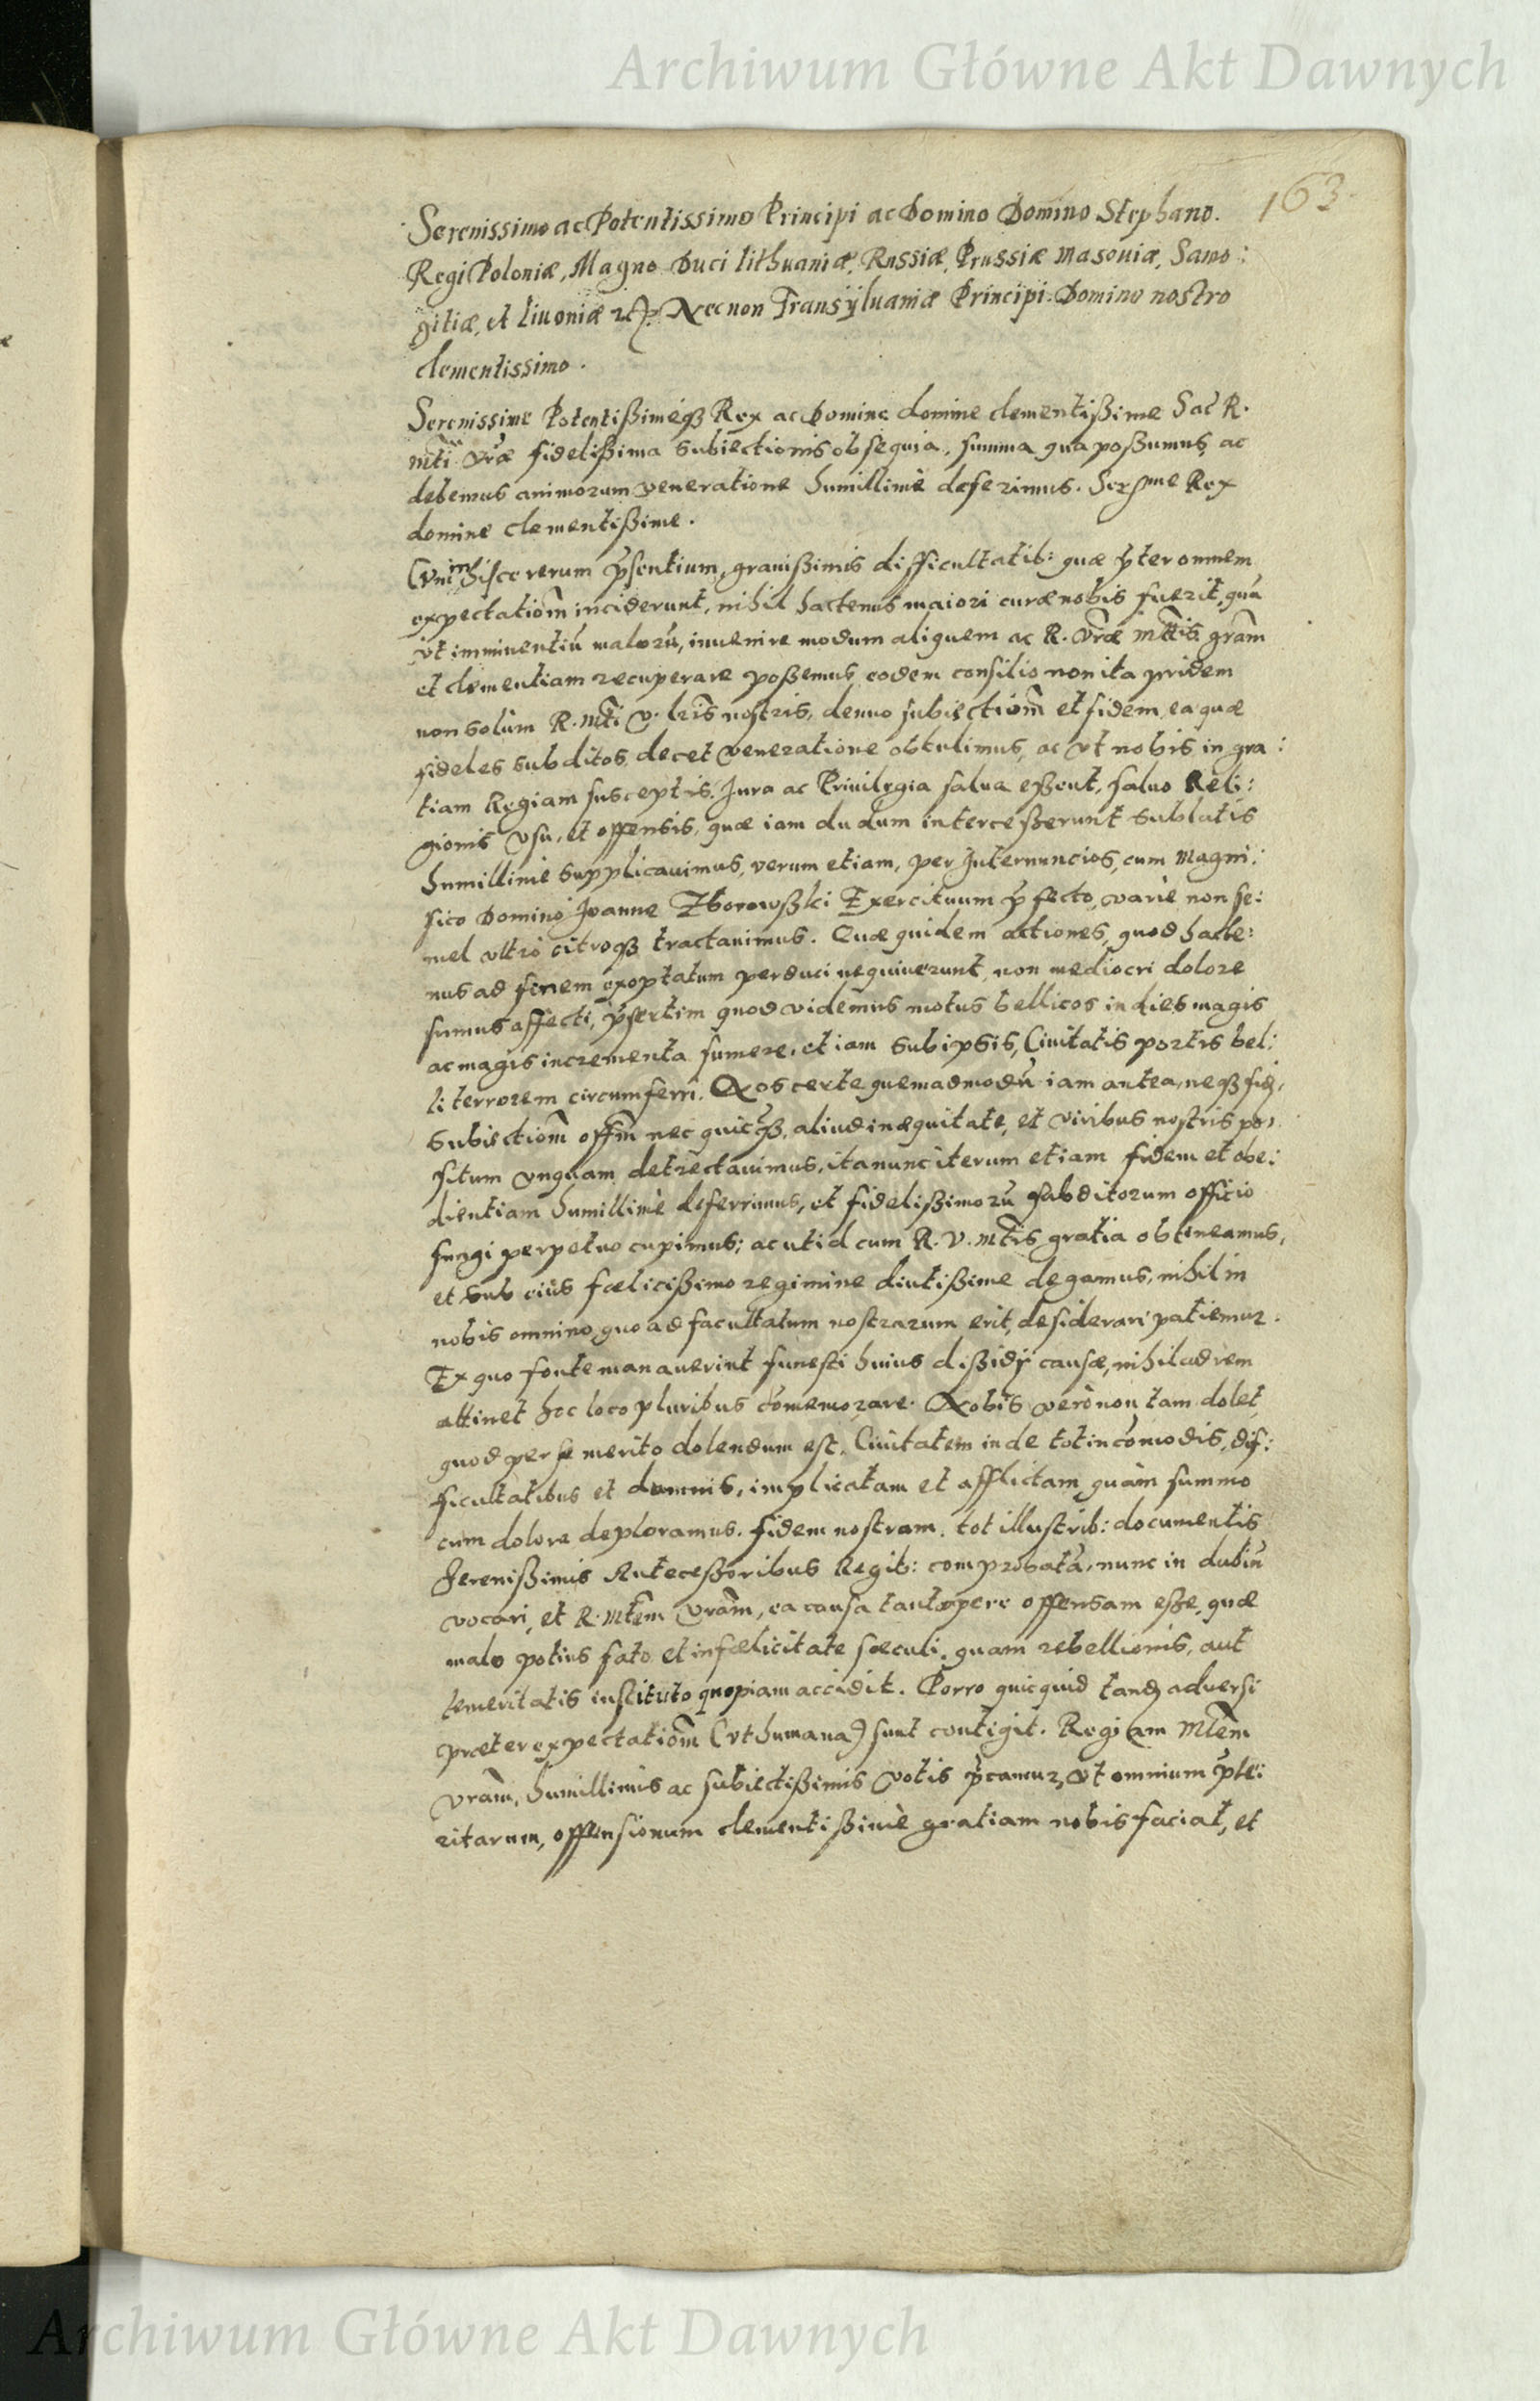 Archiwum Główne Akt Dawnych
163
Serenissimo ac Potentissimo Principi ac Domino Domino Stephano.
Regi Poloniæ, Magno Duci Lithuaniæ, Russiæ, Prussiæ Masouiæ, Samo:
gitiæ, et Liuoniæ Necnon Transijluaniæ Principi. Domino nostro
clementissimo.
Serenissime Potentißimeqȝ Rex ac Domine domine clementißime Sac R.
Mtti Vræ fidelißima subiectionis obsequia, summa qua poßumus, ac
debemus animorum veneratione humillimè deferimus. Serᵐᵉ Rex
domine clementißime.
Cum hisce rerum p̃sentium, grauißimis difficultatib: quæ p̃ter omnem
expectatiom̃ inciderunt, nihil hactenus maiori curæ nobis fuerit, quã
vt imminentiũ malorũ, inuenire modum aliquem ac R. Vræ Mttis gram̃
et clementiam recuperare poßemus, eodem consilio non ita pridem
non solùm R. Mtti V. lris nostris, denuo subiectiom̃ et fidem, ea quæ
fideles subditos decet veneratione obtulimus, ac vt nobis in gra:
tiam Regiam susceptis, Jura ac Priuilegia salua eßent, saluo Reli:
gionis vsu, et offensis, quæ iam dudum interceßerunt sublatis
humillimè supplicauimus, verum etiam, per Internuncios, cum Magni:
fico Domino Joanne Zborowßki Exercituum p̃fecto, variè non se:
mel vltrò citroqȝ tractauimus. Quæ quidem actiones, quod hacte:
nus ad finem exoptatum perduci nequiuerunt, non mediocri dolore
sumus affecti, p̃sertim quod videmus motus bellicos in dies magis
ac magis incrementa sumere, et iam sub ipsis, Ciuitatis portis bel:
li terrorem circumferri. Nos certe quemadmodũ iam antea, neqȝ fid,
subiectiom̃ offm̃ nec quicqȝ, aliud in æquitate, et viribus nostris po:
situm vnquam detrectauimus, ita nunc iterum etiam fidem et obe:
dientiam humillimè deferimus, et fidelißimorũ subditorum officio
fungi perpetuo cupimus; ac ut id cum R. V. Mtis gratia obtineamus,
et sub eius fœlicißimo regimine diutißime degamus, nihil in
nobis omnino, quoad facultatum nostrarum erit, desiderari patiemur.
Ex quo fonte manauerint funesti huius dißidij causæ, nihil ad rem
attinet hoc loco pluribus cõmemorare. Nobis verò non tam dolet,
quod per se merito dolendum est, Ciuitatem inde tot incõmodis, dif:
ficultatibus et damnis, implicatam et afflictam, quàm summo
cum dolore deploramus. fidem nostram, tot illustrib: documentis
Serenißimis Anteceßoribus Regib: comprobatã, nunc in dubiũ
vocari, et R. Mtem Vram, ea causa tantopere offensam eße, quæ
malo potius fato et infælicitate sæculi, quam rebellionis, aut
temeritatis instituto quopiam accidit. Porro quicquid tandẽ adversi
præter expectatiom̃ (vt humana) sunt contigit. Regiam Mtem
Vram, humillimis ac subiectißimis votis p̃camur, vt omnium p̃te:
ritarum, offensionum clementißimè gratiam nobis faciat, et
Archiwum Główne Akt Dawnych